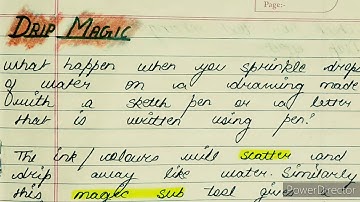 Page:-
DRIP MAGIC
what happen when you sprinkle drops
of water on a drawing made
with a sketch pen or a letter
that is written using pen?
The ink/colours will scatter and
drip away like water. Similarly
this magic sub tool gives a
PowerDirector